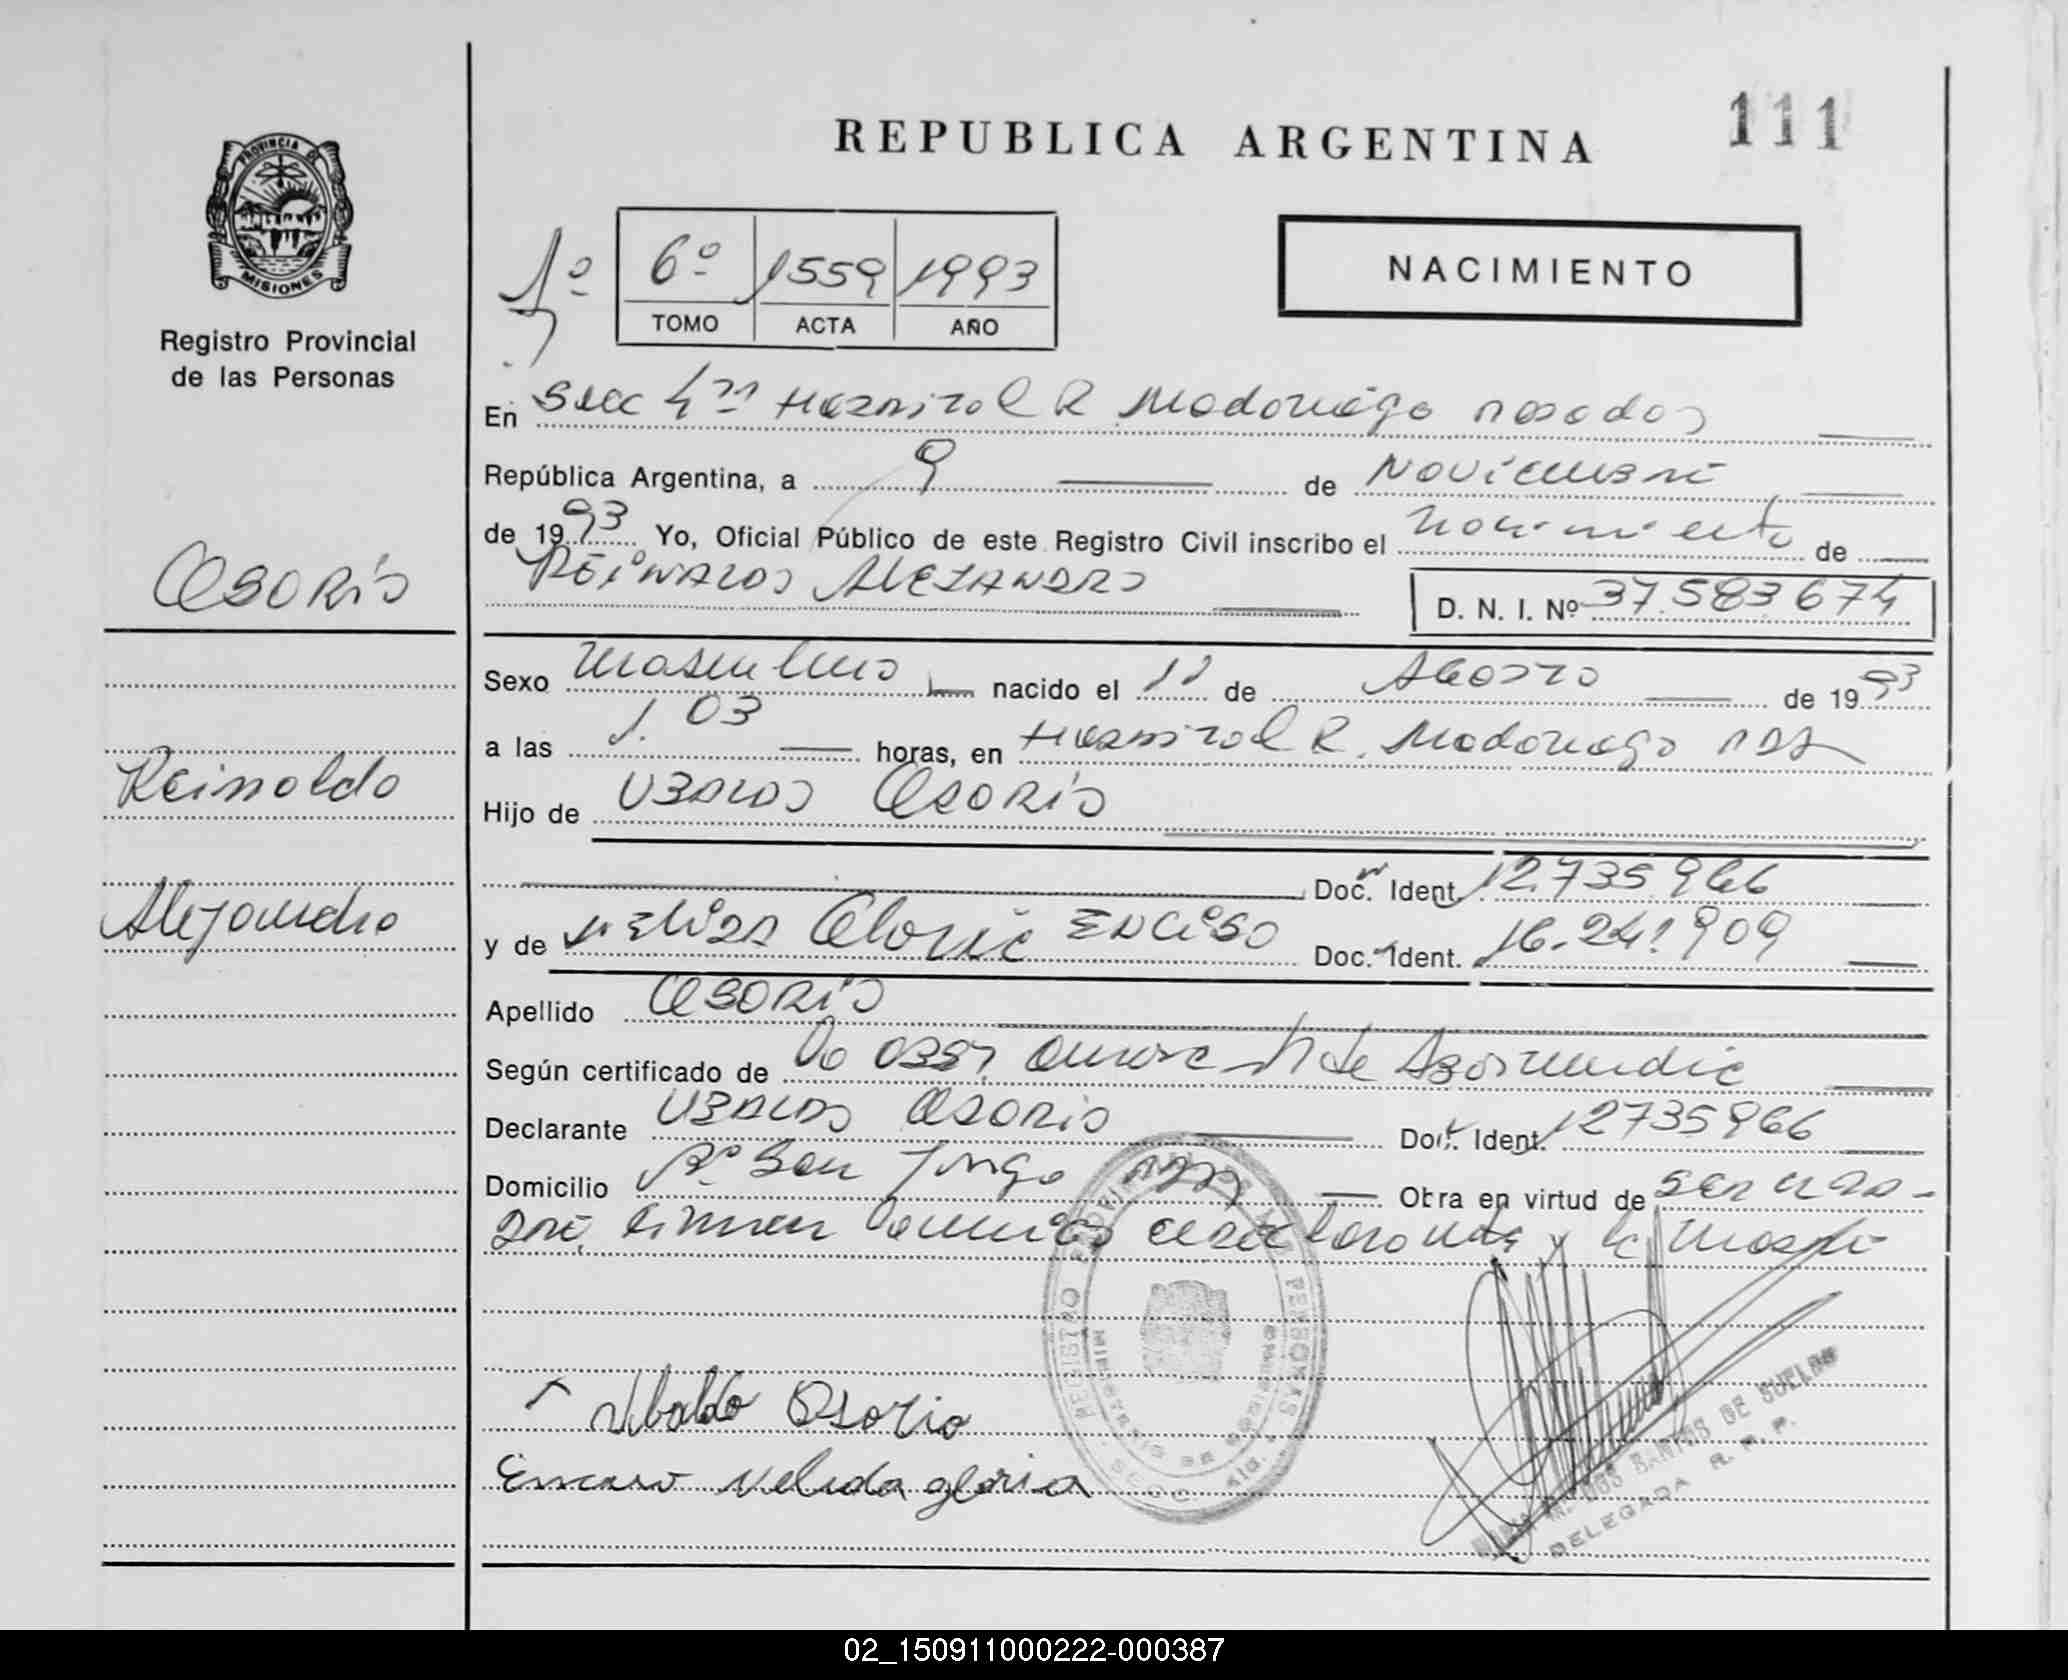 PROVINCIA DE
MISIONES
Registro Provincial
de las Personas
REPUBLICA ARGENTINA
111
1º
6º 1559 1993
TOMO ACTA AÑO
NACIMIENTO
En Secc 4ta Hospital R Madariaga Posadas
República Argentina, a 9 de Noviembre
de 1993 Yo, Oficial Público de este Registro Civil inscribo el nacimiento de
Osorio
REINALDO ALEJANDRO
D. N. I. Nº 37.583674
Sexo Masculino nacido el 11 de Agosto de 1993
a las 1.03 horas, en Hospital R. Madariaga Pdas
Reinaldo
Hijo de UBALDO Osorio
Doc. Ident. 12.735966
Alejandro
y de NELIDA Gloria ENCISO Doc. Ident. 16.241.909
Apellido OSORIO
Según certificado de La Obst.
Declarante UBALDO OSORIO Doc. Ident. 12735966
Domicilio Bº San Jorge Pdas Obra en virtud de ser
y la Madre
Ubaldo Osorio
Enciso Nelida gloria
REGISTRO PROVINCIAL DE LAS PERSONAS
MINISTERIO DE GOBIERNO
DOS SANTOS DE SUELDO
DELEGADA R. P. P.
02_150911000222-000387